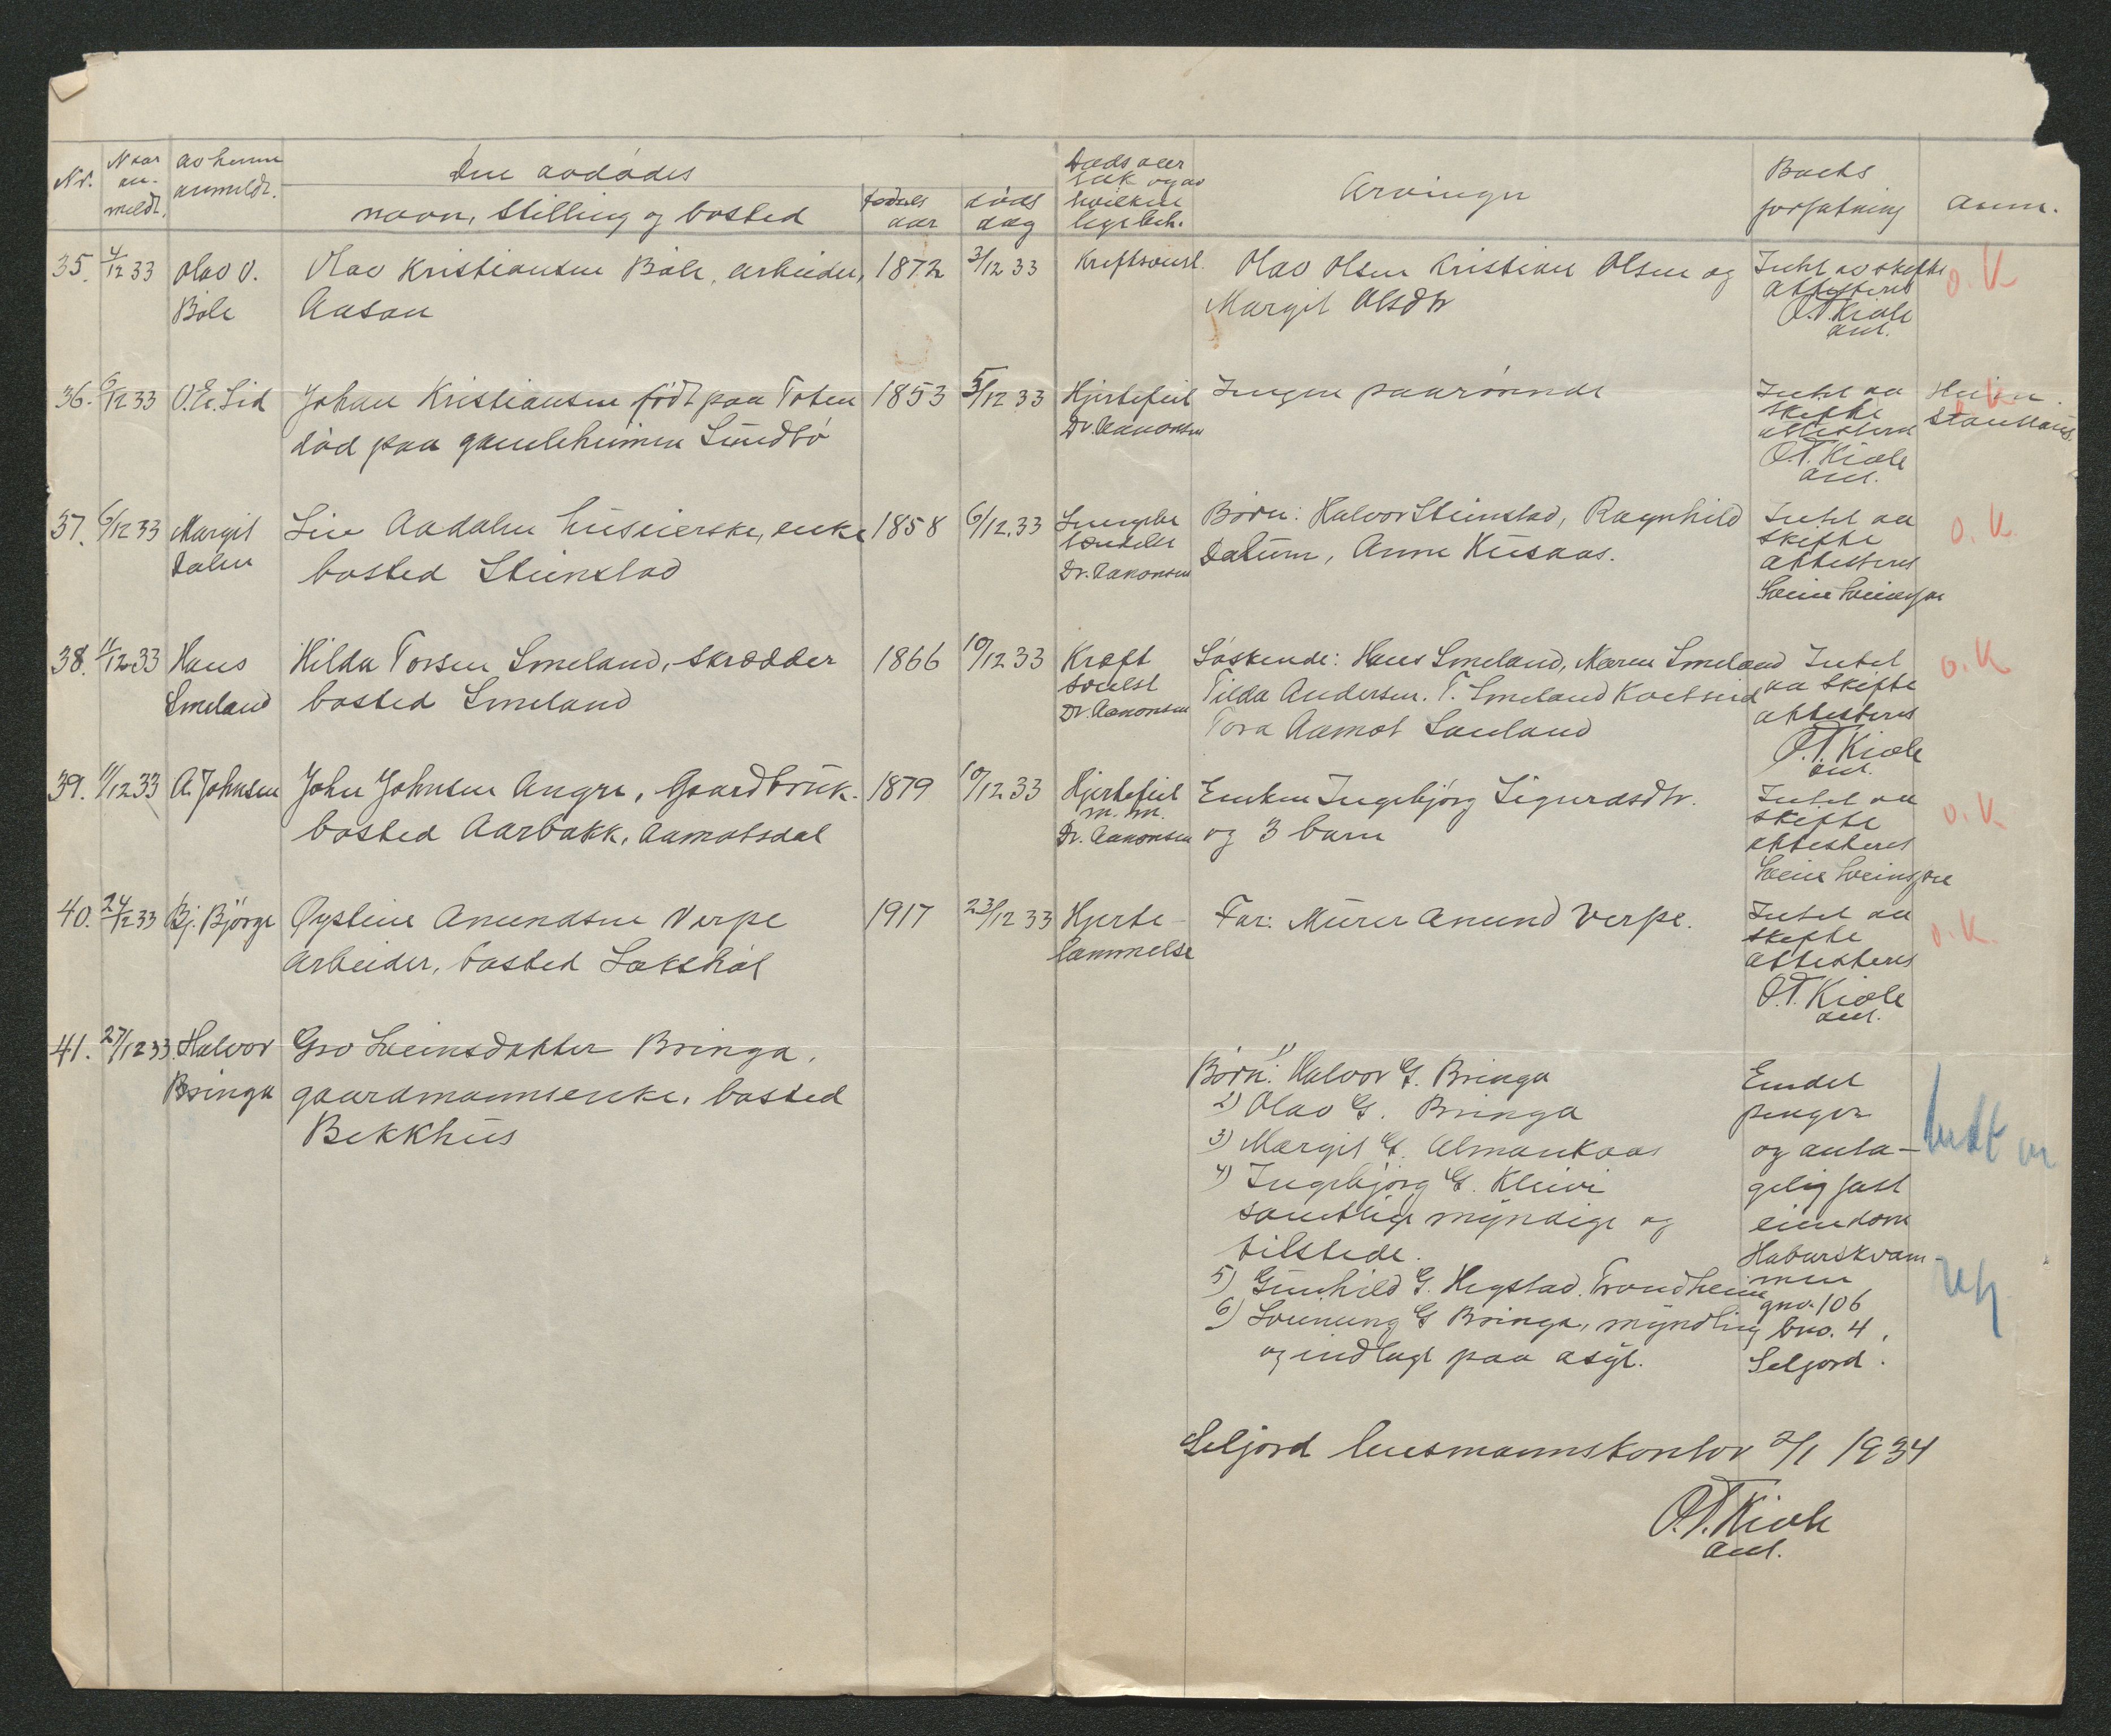 Nr.
Naar
an-
meldt.
av hvem
anmeldt.
Den avdødes
navn, stilling og bosted
fødsels
aar
døds
dag
Dødsaar
sak og av
hvilken
lege beh.
Arvinger
Boets
forfatning
Anm.
35. 4/12 33 Olav O. Olav Kristiansen Bøle, arbeider, 1872 3/12 33 Kreftsvulst Olav Olsen Kristian Olsen og Intet av skifte o.K
Bøle Aasan Margit Olsdtr attesteres
O.T. Kivle
ass.
36. 6/12 33 O.E. Lid Johan Kristiansen født paa Toten 1853 5/12 33 Hjertefeil Ingen paarørende Intet aa
død paa gamleheimen Sundbø Dr. Aakonsen skifte
attesteres
O.T. Kivle
ass.
37. 6/12 33 Margit Liv Aadalen huseierske, enke 1858 6/12.33 Lungebe Børn: Halvor Steinstad, Ragnhild Intet aa o.K.
Dalen bosted Steinstad tendelse Dalum, Anne Husaas. skifte
Dr. Aakonsen attesteres
38. 11/12 33 Hans Hilda Torsen Smeland, skrædder 1866 10/12 33 Kræft Søskende: Hans Smeland, Maren Smeland Intet o.K
Smeland bosted Smeland svulst Tilda Andersen. T. Smeland aa skifte
Dr. Aakonsen Tora Aamot Sauland attesteres
O.T. Kivle
ass.
39. 11/12 33 A. Johnsen John Johnsen Angre, Gaardbruk. 1879 10/12 33 Hjertefeil Enken Ingebjørg Sigurdsdtr. Intet aa o.K
bosted Aarbakk, Aamotsdal m.m. og 3 barn skifte
Dr. Aakonsen attesteres
40. 24/12 33 Bj. Bjørge Øystein Anundsen Verpe 1917 23/12 33 Hjerte- Far: Murer Anund Verpe. Intet aa o.K.
arbeider, bosted Lakshøl lammelse skifte
attesteres
O.T. Kivle
ass.
41. 27/12 33. Halvor Gro Sveinsdatter Bringa,
Bringa gaardmannsenke, bosted
Bekkhus
Børn: 1) Halvor G. Bringa
2) Olav G. Bringa
3) Margit G. Almankaas
4) Ingebjørg G. Kleivi
samtlige myndige og
tilstede.
5) Gunhild G. Hegstad. Trondheim
6) Sveinung G Bringa, myndling
og indlagt paa asyl.
Endel
penger
og anta-
gelig fast
eiendom
Haburskvam-
men
gno. 106
bno. 4,
Seljord.
Seljord lensmannskontor 2/1 1934
O.T. Kivle
ass.